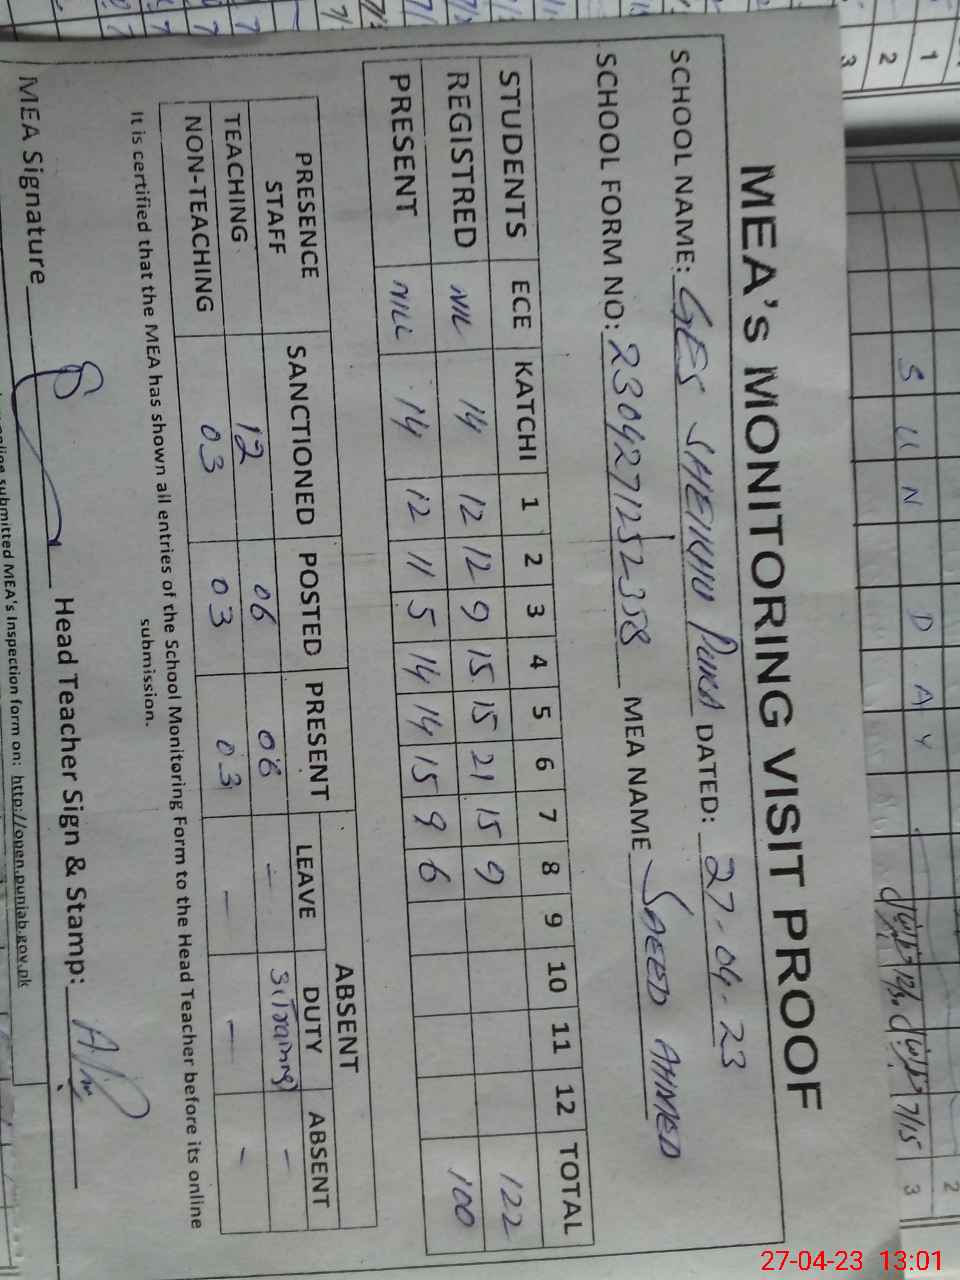 MEA's MONITORING VISIT PROOF
SCHOOL NAME: GES SHEIKHU PURA DATED: 27-04-23
SCHOOL FORM NO: 2304271252358 MEA NAME SAEED AHMED
STUDENTS ECE KATCHI 1 2 3 4 5 6 7 8 9 10 11 12 TOTAL
REGISTRED NIL 14 12 12 9 15 15 21 15 9 122
PRESENT NILL 14 12 11 5 14 14 15 9 6 100
PRESENCE STAFF SANCTIONED POSTED PRESENT ABSENT
LEAVE DUTY ABSENT
TEACHING 12 06 - 3(Training) -
NON-TEACHING 03 03 03 - - -
It is certified that the MEA has shown all entries of the School Monitoring Form to the Head Teacher before its online
submission.
MEA Signature Head Teacher Sign & Stamp:
submitted MEA's Inspection form on: http://open.punjab.gov.pk
1
2
3
S U N D A Y
2
3
27-04-23 13:01